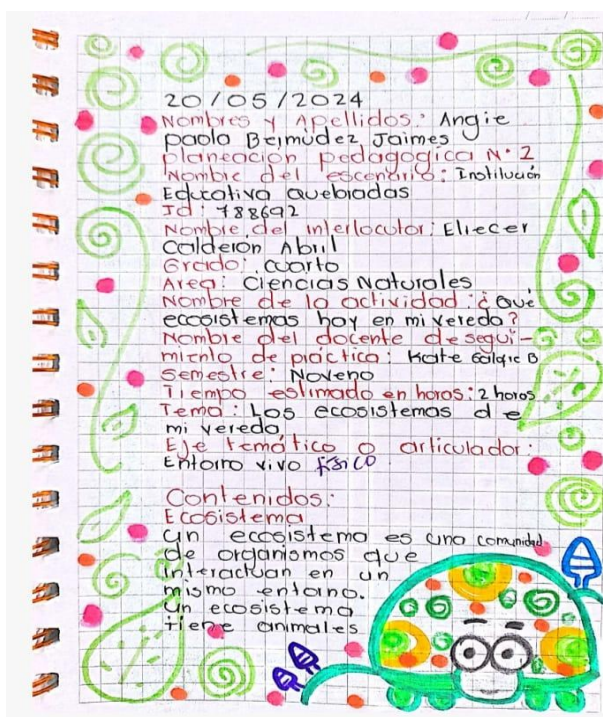 20/05/2024
Nombres y Apellidos: Angie
paola Bermúdez Jaimes
planeación pedagogica N° 2
Nombre del escenario: Institución
Educativa Quebradas
Id: 788692
Nombre del interlocutor: Eliecer
Calderón Abril
Grado: cuarto
Area: Ciencias Naturales
Nombre de la actividad: ¿Qué
ecosistemas hay en mi vereda?
Nombre del docente de segui-
miento de práctica: Kate B
Semestre: Noveno
Tiempo estimado en horas: 2 horas
Tema: Los ecosistemas de
mi vereda
Eje temático o articulador:
Entorno vivo físico
Contenidos:
Ecosistema
un ecosistema es una comunidad
de organismos que
interactuan en un
mismo entorno.
un ecosistema
tiene animales